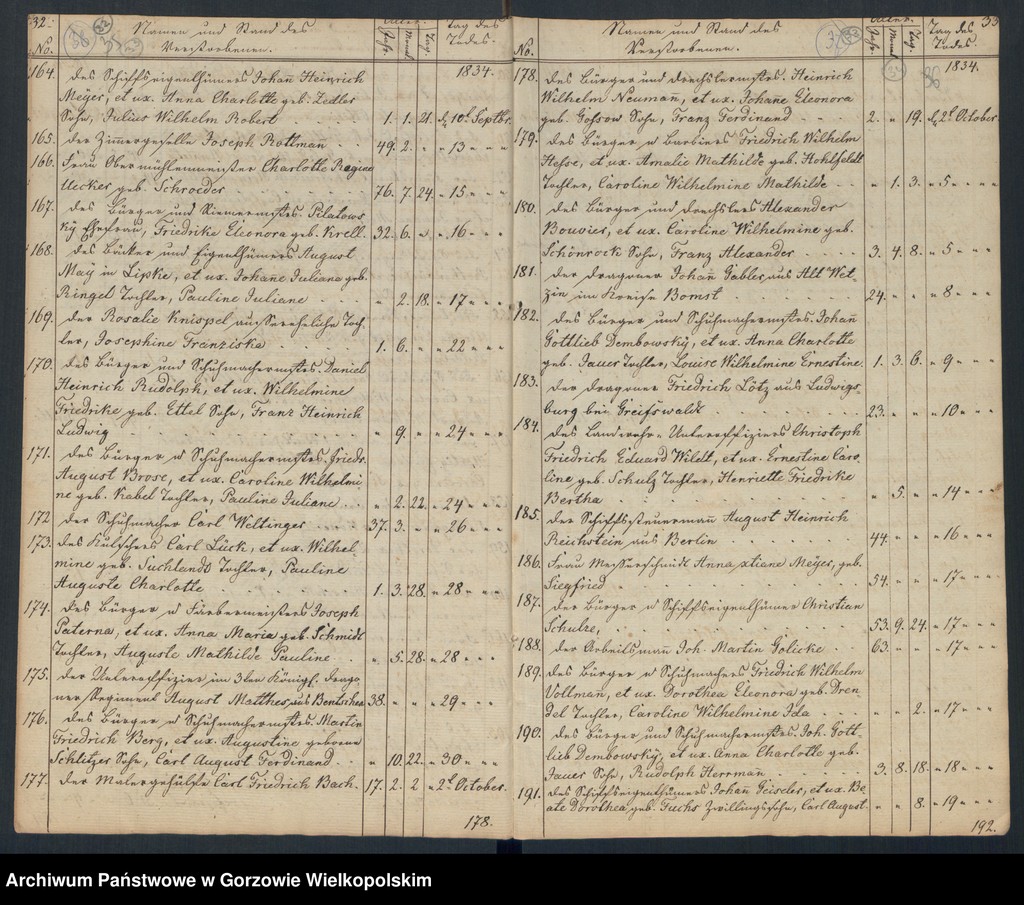 32.
No.
Namen und Stand des
Verstorbenen.
Alter.
Jahr.
Monat
Tag.
Tag des
Todes.
1834.
164. des Schiffseigenthümers Johañ Heinrich
Meyer, et ux. Anna Charlotte geb. Zedler
Sohn, Julius Wilhelm Robert 1. 1. 21. d. 10t Septbr.
165. der Zim̃ergeselle Joseph Rottman 49. 2. " " 13 "
166. Frau Obermühlenmeister Charlotte Regine
Uecker geb. Schroeder 76. 7. 24. " 15 "
167. des Bürger und Riemermstrs. Pilatows
ky Ehefrau, Friedrike Eleonora geb. Krell. 32. 6. " " 16 "
168. des Bäcker und Eigenthümers August
May in Lipke, et ux. Johañe Juliane geb.
Ringel Tochter, Pauline Juliane " 2. 18. " 17 "
169. der Rosalie Knispel außereheliche Toch-
ter, Josephine Franziska 1. 6. " " 22 "
170. des Bürger und Schuhmachermstrs. Daniel
Heinrich Rudolph, et ux. Wilhelmine
Friedrike geb. Ettel Sohn, Franz Heinrich
Ludwig " 9. " " 24 "
171. des Bürger u Schuhmachermstrs. Friedr.
August Brose, et ux. Caroline Wilhelmi
ne geb. Kabel Tochter, Pauline Juliane " 2. 22. " 24 "
172 der Schuhmacher Carl Weltinger 37. 3. " " 26 "
173. des Kutschers Carl Lück, et ux. Wilhel
mine geb. Suchlandt Tochter, Pauline
Auguste Charlotte 1. 3. 28. " 28 "
174. des Bürger u Färbermeisters Joseph
Paterna, et ux. Anna Maria geb. Schmidt
Tochter, Auguste Mathilde Pauline " 5. 28. " 28 "
175. der Unteroffizier im 3ten Königl. Drago
ner Regiment August Matthes aus Bentschen 38. " " " 29 "
176. des Bürger u Schuhmachermstrs. Martin
Friedrich Berg, et ux. Augustine geborne
Schlitzer Sohn, Carl August Ferdinand " 10. 22. " 30 "
177. der Malergehülfe Carl Friedrich Bach. 17. 2. 2 " 2t October.
178.
33
No.
Namen und Stand des
Verstorbenen.
Alter.
Jahr.
Monat
Tag.
Tag des
Todes.
1834.
178. des Bürger und Drechslermstrs. Heinrich
Wilhelm Neumañ, et ux. Johañe Eleonora
geb. Gohsow Sohn, Franz Ferdinand 2. " 19. d. 2t October.
179. des Bürger u Barbiers Friedrich Wilhelm
Hesse, et ux. Amalie Mathilde geb. Hohlfeldt
Tochter, Caroline Wilhelmine Mathilde " 1. 3. " 5 "
180. des Bürger und Drechslers Alexander
Bouvier, et ux. Caroline Wilhelmine geb.
Schönrock Sohn, Franz Alexander 3. 4. 8. " 5 "
181. der Dragoner Johañ Gabler aus Alt Wet-
zin im Kreise Bomst 24. " " " 8 "
182. des Bürger und Schuhmachermstrs. Johañ
Gottlieb Dembowsky, et ux. Anna Charlotte
geb. Jauer Tochter, Louise Wilhelmine Ernestine. 1. 3. 6. " 9 "
183. der Dragoner Friedrich Lötz aus Ludwigs-
burg bei Greifswaldt 23. " " " 10 "
184. des Landwehr-Unteroffiziers Christoph
Friedrich Eduard Wildt, et ux. Ernestine Caro
line geb. Schulz Tochter, Henriette Friedrike
Bertha " 5. " " 14 "
185. der Schiffssteuermañ August Heinrich
Reichstein aus Berlin 44. " " " 16 "
186. Frau Messerschmidt Anna Xtiane Meyer, geb.
Siegfried 54. " " " 17 "
187. der Bürger u Schiffseigenthümer Christian
Schulze, 53. 9. 24. " 17 "
188. der Arbeitsmañ Joh. Martin Golicke 63. " " " 17 "
189. des Bürger u Schuhmachers Friedrich Wilhelm
Vollmañ, et ux. Dorothea Eleonora geb. Dren
del Tochter, Caroline Wilhelmine Ida " " 2. " 17 "
190. des Bürger und Schuhmachermstrs. Joh. Gott-
lieb Dembowsky, et ux. Anna Charlotte geb.
Jauer Sohn, Rudolph Herrman 3. 8. 18. " 18 "
191. des Schiffseigenthümers Johañ Geiseler, et ux. Be
ate Dorothea geb. Fuchs Zwillingssohn, Carl August " " 8. " 19 "
192.
Archiwum Państwowe w Gorzowie Wielkopolskim